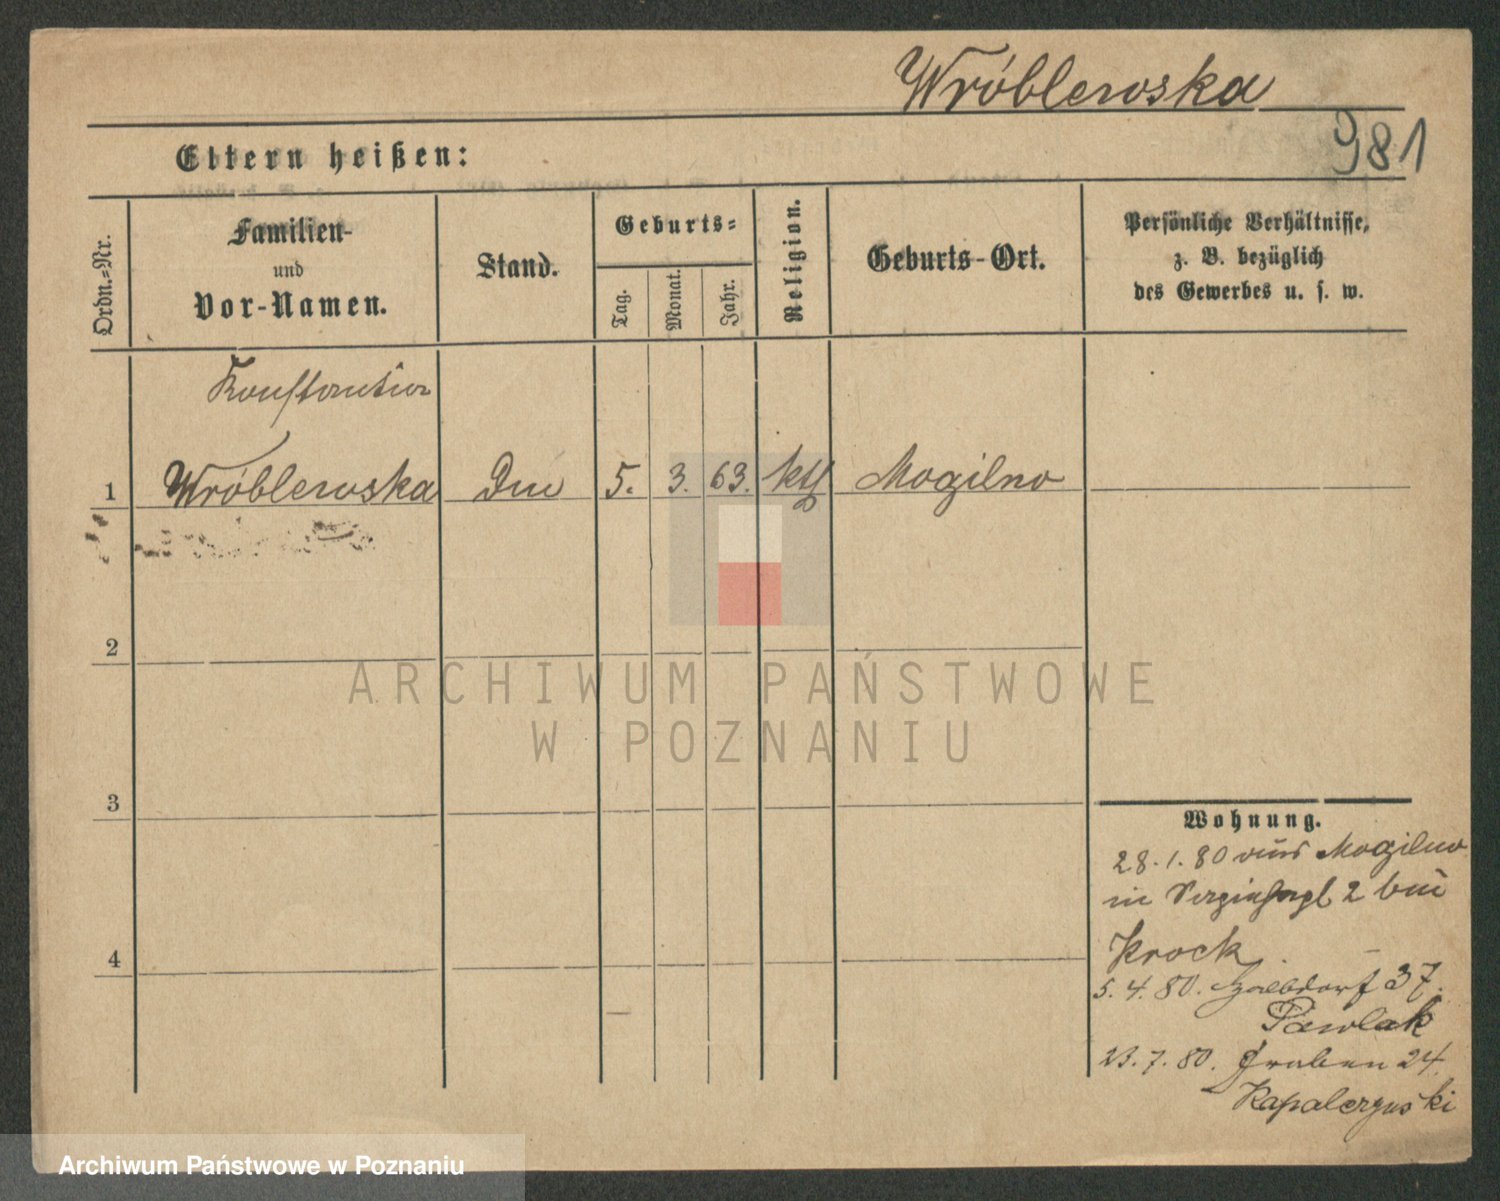 Wróblewska
981
Eltern heißen:
Ordn.=Nr.
Familien-
und
Vor-Namen.
Stand.
Geburts=
Tag.
Monat.
Jahr.
Religion.
Geburts-Ort.
Persönliche Verhältnisse,
z. B. bezüglich
des Gewerbes u. s. w.
Konstantia
1 Wróblewska 5. 3. 63. kth Mogilno
2
3
4
Wohnung.
28.1.80 aus Mogilno
in 2 bei
Krock
5.4.80. Halbdorf 37.
Pawlak
23.7.80. Graben 24.
ARCHIWUM PAŃSTWOWE
W POZNANIU
Archiwum Państwowe w Poznaniu